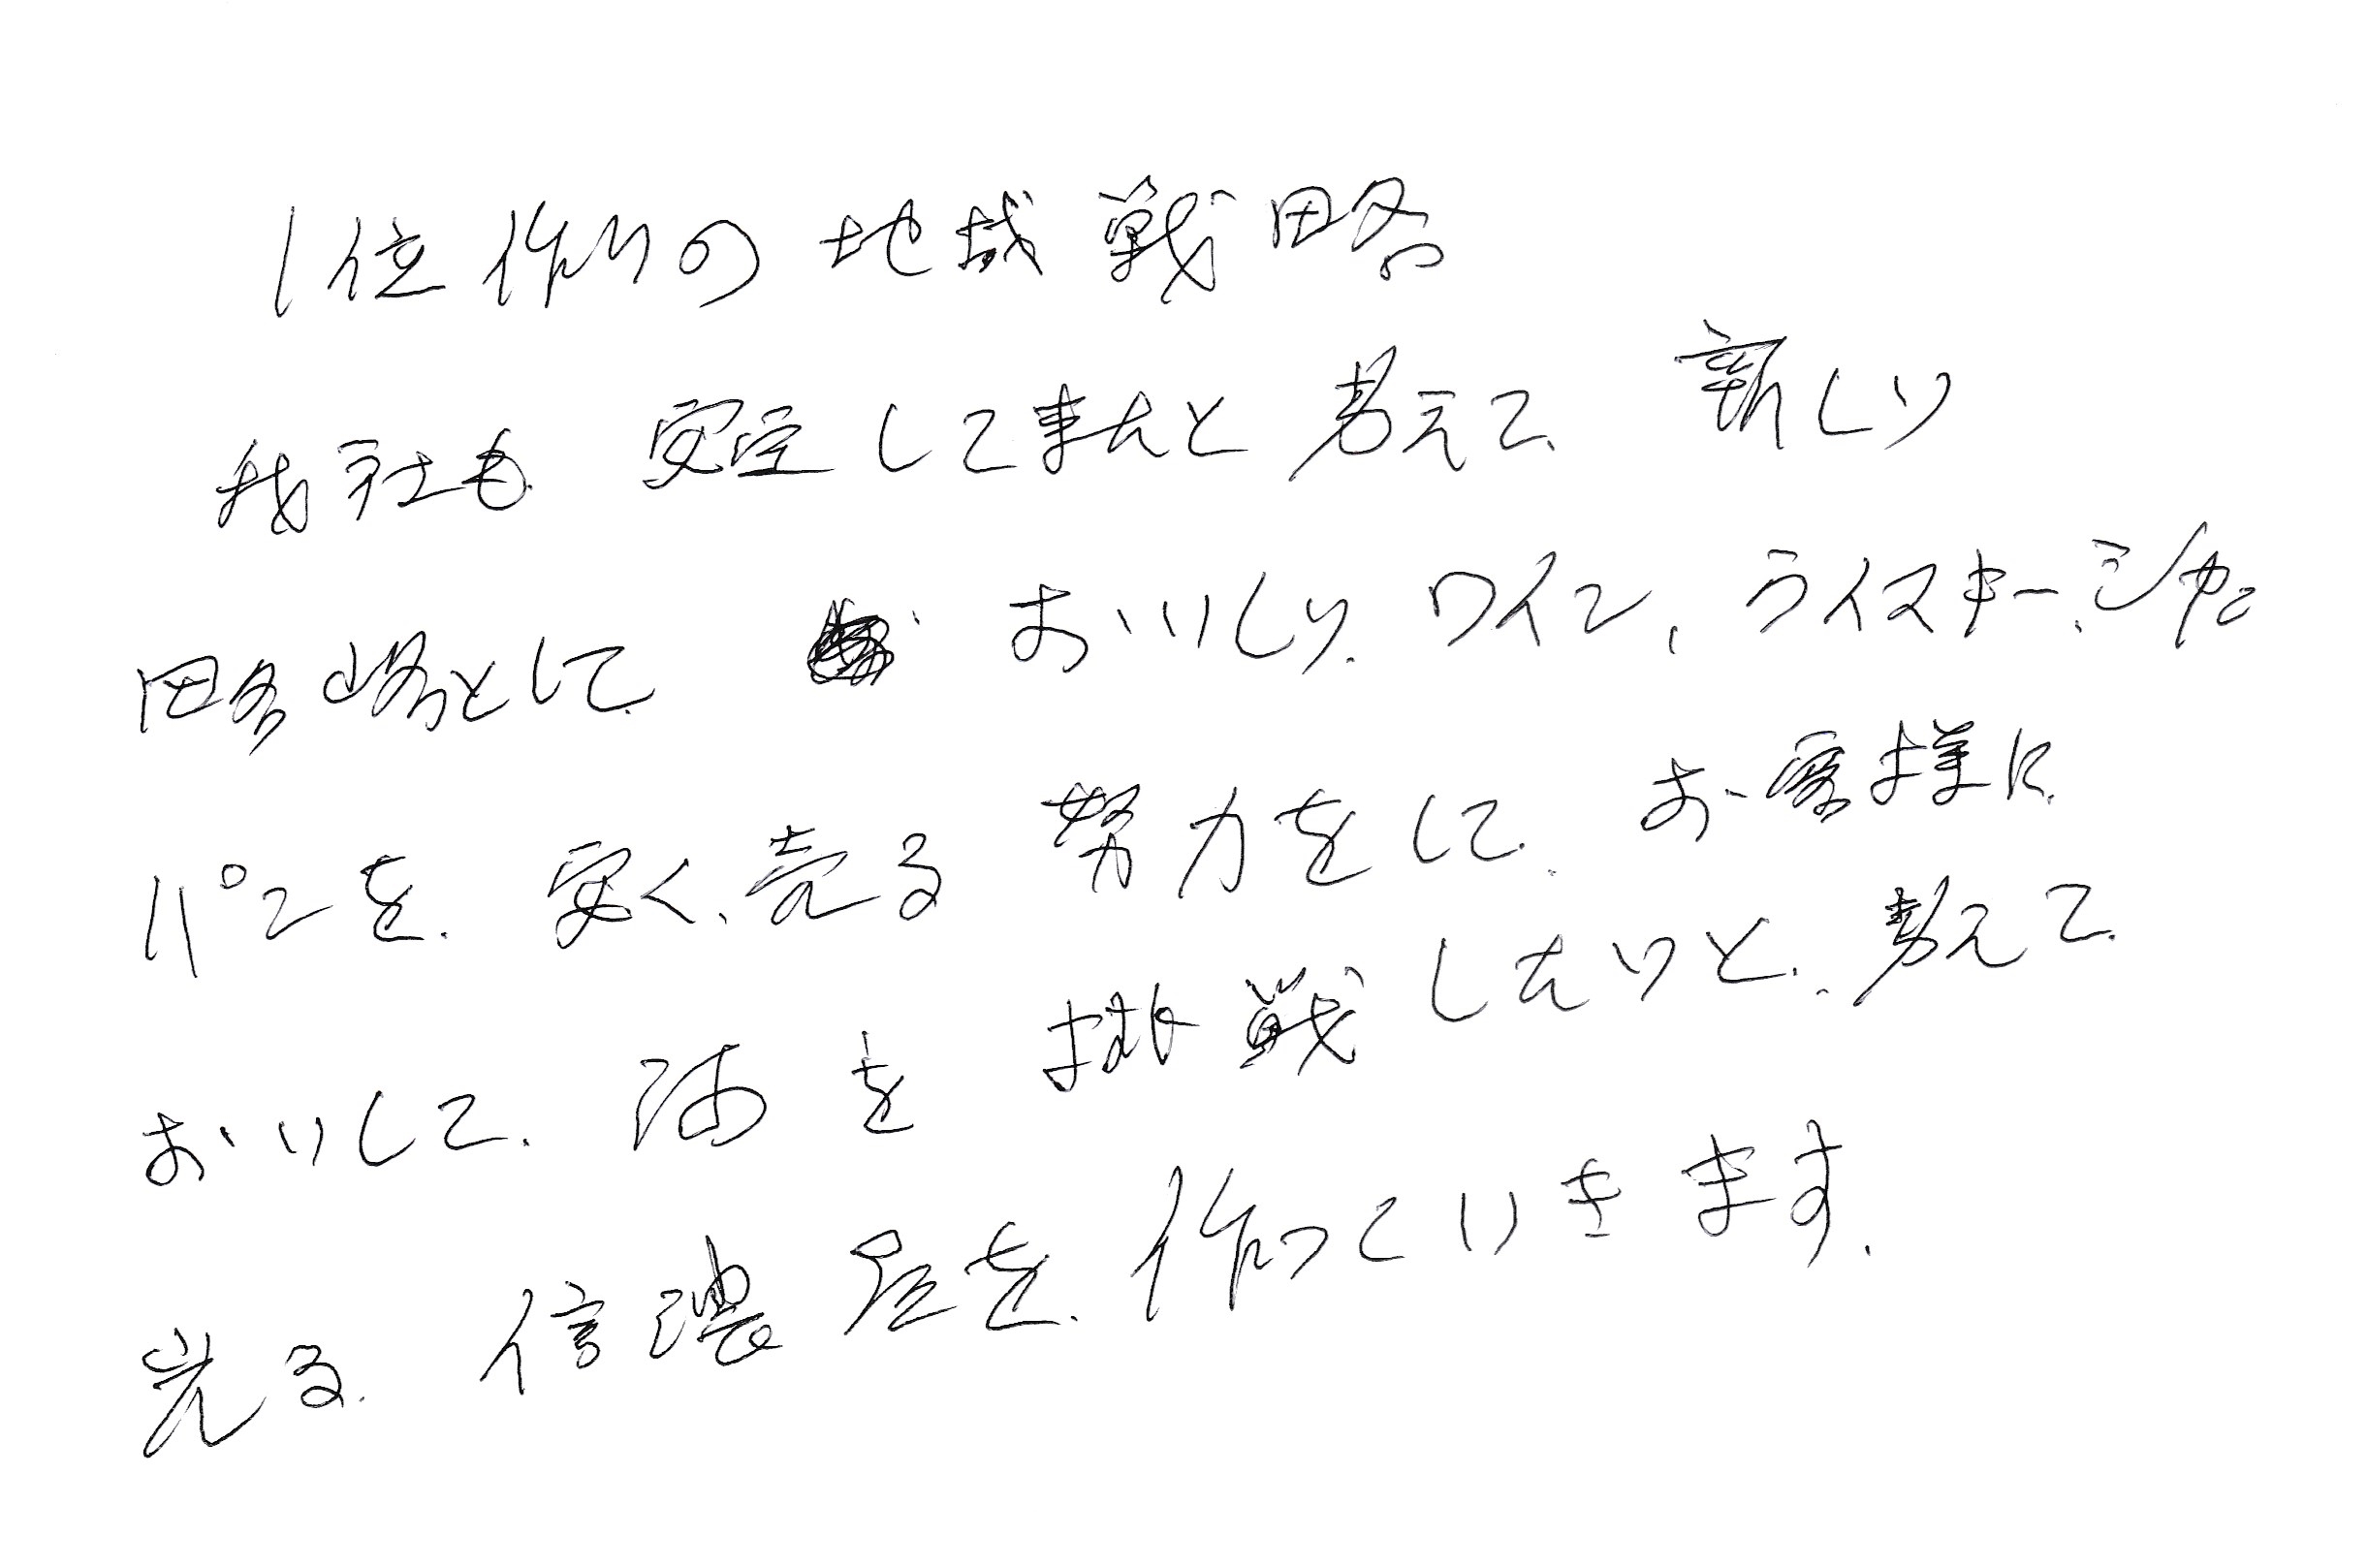 1位作りの地域戦略
我社も安定してきたと考えて、新しい
として、おいしい、ワイン、ウイスキー、シャン
パンを、安く、売る努力をして、お客様に
おいしい、酒を挑戦したいと、考えて、
光る、信濃屋を、作っていきます。